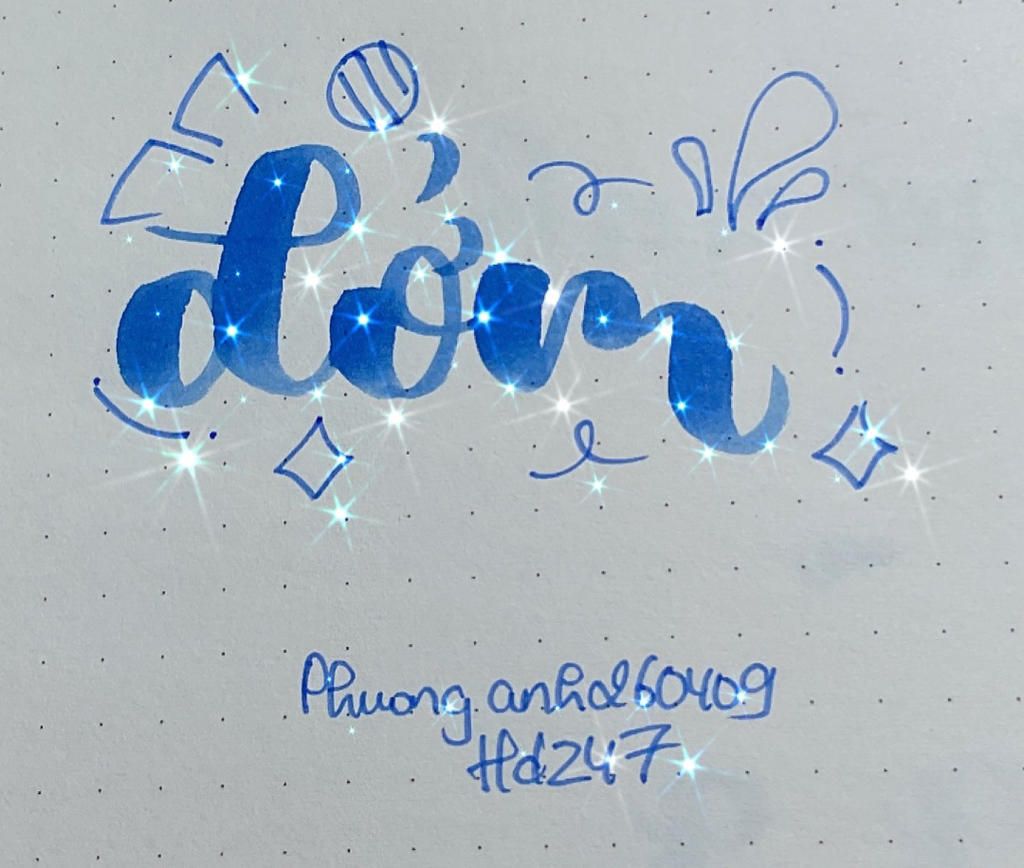 đởm
Phuong.anhd260409
Hd247